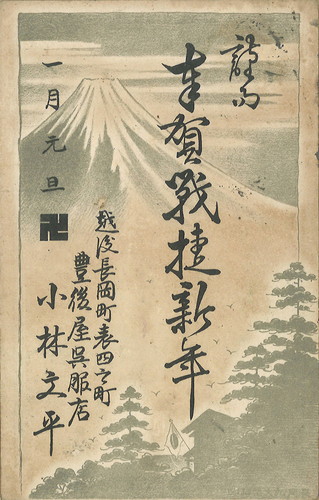 謹而
奉賀戰捷新年
一月元旦
卍
越後長岡町表四之町
豊後屋呉服店
小林文平